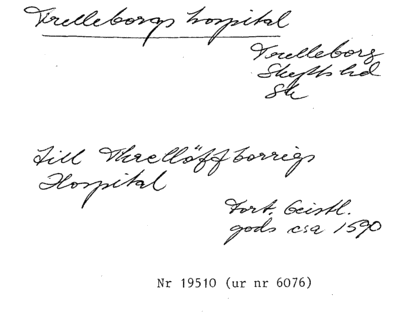 Trelleborgs hospital
Trelleborg
Skytts hd
Sk
till Threllöffborrigs
Hospital
Fört. Geistl.
gods csa 1590
Nr 19510 (ur nr 6076)